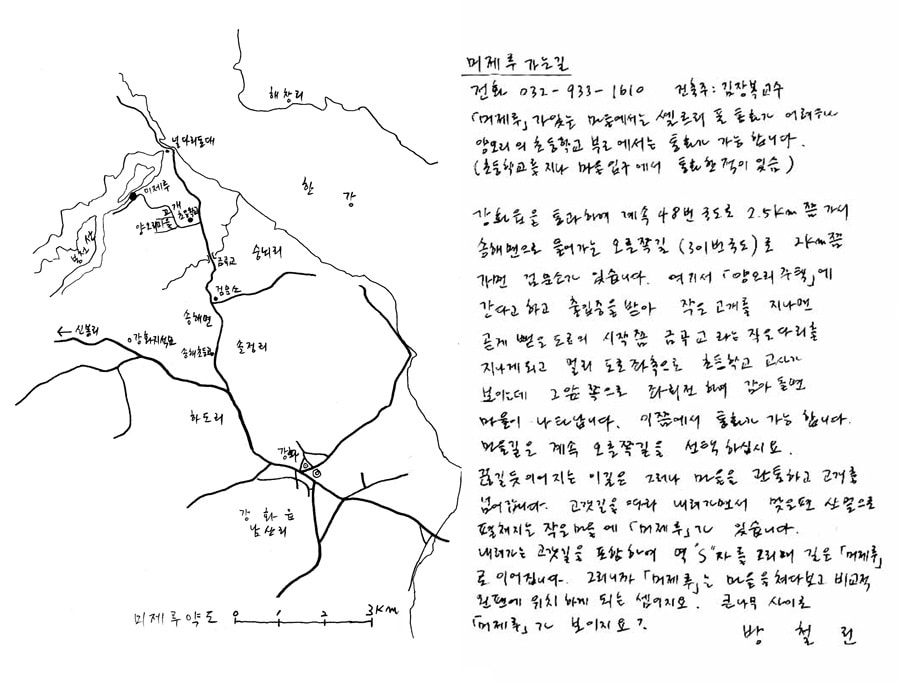 해창리
널다리돈대
한강
미제루
고개
양오리마을
초등학교
숭뢰리
금곡교
검문소
송해면
신봉리
강화지석묘
송해초등교
솔정리
하도리
강화
강화읍
남산리
미제루약도 0 1 2 3Km
미제루 가는길
전화 032-933-1610 건축주: 김장복교수
「미제루」가있는 마을에서는 셀루러 폰 통화가 어려우나
양오리의 초등학교 부근에서는 통화가 가능합니다.
(초등학교를 지나 마을입구에서 통화한적이 있슴)
강화읍을 통과하여 계속 48번 국도로 2.5Km쯤 가서
송해면으로 들어가는 오른쪽길(301번국도)로 2Km쯤
가면 검문소가 있습니다. 여기서 「양오리 주택」에
간다고하고 출입증을 받아 작은 고개를 지나면
곧게 뻗은 도로의 시작쯤 금곡교라는 작은다리를
지나게되고 멀리 도로좌측으로 초등학교 교사가
보이는데 그앞쪽으로 좌회전하여 감아돌면
마을이 나타납니다. 이쯤에서 통화가 가능합니다.
마을길은 계속 오른쪽길을 선택하십시요.
끊길듯이어지는 이길은 그러나 마을을 관통하고 고개를
넘어갑니다. 고갯길을 따라 내려가면서 맞은편 산옆으로
펼쳐지는 작은마을에 「미제루」가 있습니다.
내려가는 고갯길을 포함하여 역"S"자를 그리며 길은 「미제루」
로 이어집니다. 그러니까 「미제루」는 마을을쳐다보고 비교적
왼편에 위치하게 되는 셈이지요. 큰나무 사이로
「미제루」가 보이지요?
방철린